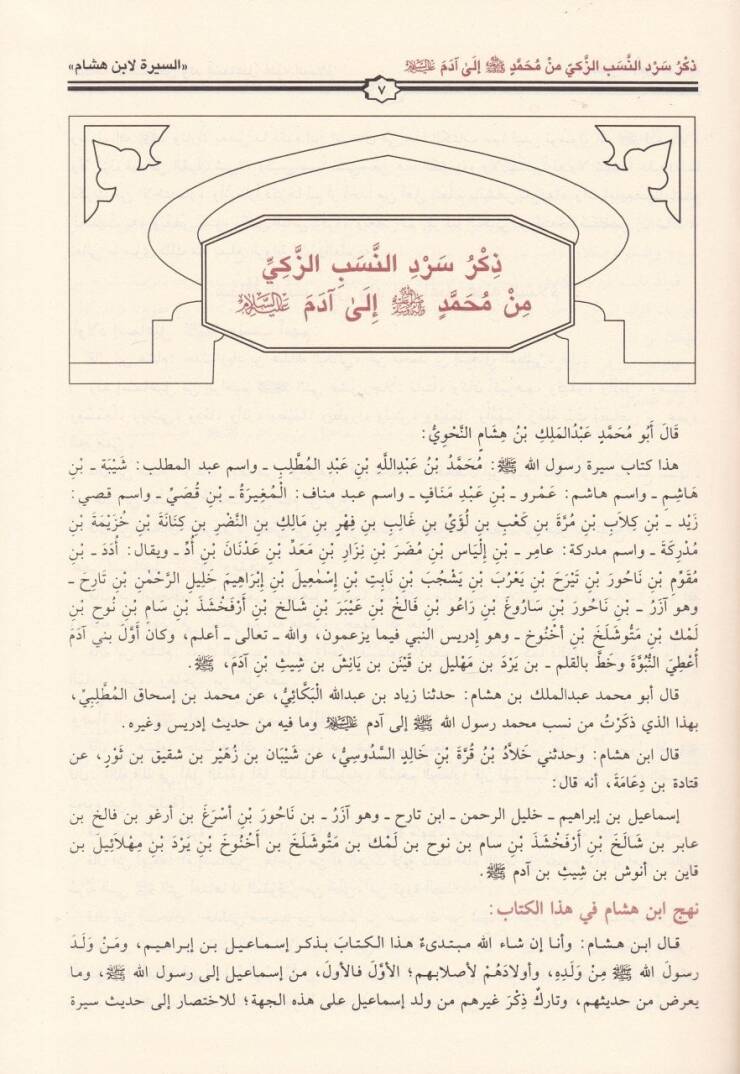 ذِكْرُ سَرْدِ النَّسَبِ الزَّكِيِّ مِنْ مُحَمَّدٍ ﷺ إِلَىٰ آدَمَ عَلَيْهِ السَّلَام
«السيرة لابن هشام»
٧
ذِكْرُ سَرْدِ النَّسَبِ الزَّكِيِّ
مِنْ مُحَمَّدٍ ﷺ إِلَىٰ آدَمَ عَلَيْهِ السَّلَام
قَالَ أَبُو مُحَمَّدٍ عَبْدُالمَلِكِ بْنُ هِشَامٍ النَّحْوِيُّ:
هذا كتاب سيرة رسول الله ﷺ: مُحَمَّدُ بْنُ عَبْدِاللَّهِ بْنِ عَبْدِ المُطَّلِبِ ـ واسم عبد المطلب: شَيْبَة ـ بْنِ
هَاشِمٍ ـ واسم هاشم: عَمْرو ـ بْنِ عَبْدِ مَنَافٍ ـ واسم عبد مناف: الْمُغِيرَةُ ـ بْنِ قُصَيٍّ ـ واسم قصي:
زَيْد ـ بْنِ كِلَابِ بْنِ مُرَّةَ بْنِ كَعْبِ بنِ لُؤَيِّ بنِ غَالِبِ بنِ فِهْرِ بنِ مَالِكِ بنِ النَّضْرِ بنِ كِنَانَةَ بْنِ خُزَيْمَةَ بْنِ
مُدْرِكَةَ ـ واسم مدركة: عامِر ـ بْنِ إِلْيَاسَ بْنِ مُضَرَ بْنِ نِزَارِ بْنِ مَعَدِّ بْنِ عَدْنَانَ بْنِ أُدٍّ ـ ويقال: أُدَدَ ـ بْنِ
مُقَوَّمِ بْنِ نَاحُورَ بْنِ تَيْرَحَ بْنِ يَعْرُبَ بْنِ يَشْجُبَ بْنِ نَابِتِ بْنِ إِسْمٰعِيلَ بْنِ إِبْرَاهِيمَ خَلِيلِ الرَّحْمٰنِ بْنِ تَارِحَ ـ
وهو آزَرُ ـ بْنِ نَاحُورَ بْنِ سَارُوغَ بْنِ رَاعُو بْنِ فَالَخْ بْنِ عَيْبَرَ بْنِ شَالَخ بْنِ أَرْفَخْشَذَ بْنِ سَامِ بْنِ نُوحِ بْنِ
لَمْك بْنِ مَتُّوشَلَخَ بْنِ أَخْنُوخَ ـ وهو إدريس النبي فيما يزعمون، والله ـ تعالى ـ أعلم، وكان أوَّلَ بني آدَمَ
أُعْطِيَ النُّبُوَّةَ وخَطَّ بالقلم ـ بن يَرْدَ بن مَهْليل بن قَيْنَن بن يَانِشَ بن شِيثِ بْنِ آدَمَ، ﷺ.
قال أبو محمد عبدالملك بن هشام: حدثنا زياد بن عبدالله الْبَكَّائِيُّ، عن محمد بن إسحاق المُطَّلِبِيِّ،
بهذا الذي ذكَرْتُ من نسب محمد رسول الله ﷺ إلى آدم عَلَيْهِ السَّلَام وما فيه من حديث إدريس وغيره.
قال ابن هشام: وحدثني خَلاَّدُ بْنُ قُرَّةَ بْنِ خَالِدٍ السَّدُوسِيُّ، عن شَيْبَان بن زُهَيْر بن شقيق بن ثَوْر، عن
قتادة بن دِعَامَةَ، أنه قال:
إسماعيل بن إبراهيم ـ خليل الرحمن ـ ابن تارح ـ وهو آزَرُ ـ بن نَاحُورَ بْنِ أَسْرَغَ بن أرغو بن فالخ بن
عابر بن شَالَخَ بْنِ أَرْفَخْشَذَ بْنِ سام بن نوح بن لَمْك بن مَتُّوشَلَخَ بن أَخْنُوخَ بْنِ يَرْدَ بْنِ مِهْلاَئِيلَ بن
قاين بن أنوش بن شِيثِ بن آدم ﷺ.
نهج ابن هشام في هذا الكتاب:
قال ابن هشام: وأنا إن شاء الله مبتدىءٌ هذا الكتابَ بذكر إسماعيل بن إبراهيم، ومَنْ وَلَدَ
رسولَ الله ﷺ مِنْ وَلَدِهِ، وأولادَهُمْ لأصلابهم؛ الأوَّلَ فالأولَ، من إسماعيل إلى رسول الله ﷺ، وما
يعرض من حديثهم، وتاركٌ ذِكْرَ غيرهم من ولد إسماعيل على هذه الجهة؛ للاختصار إلى حديث سيرة